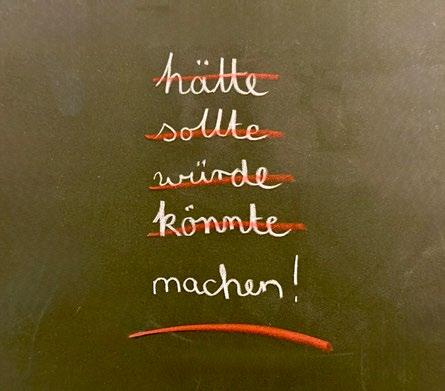 hätte
sollte
würde
könnte
machen!